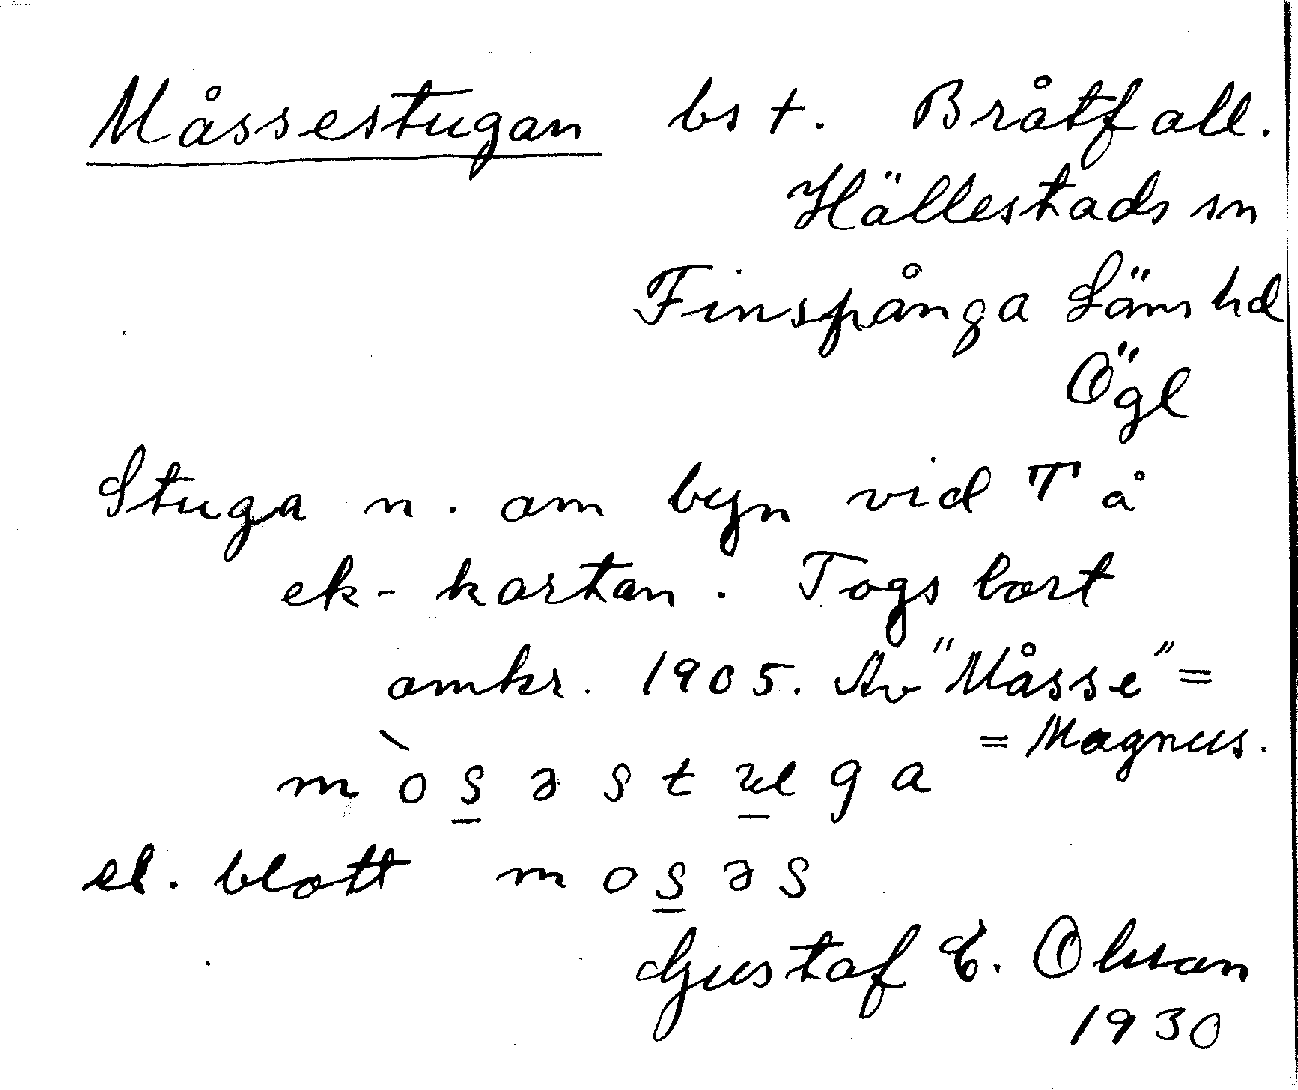 Måssestugan bst. Bråtfall.
Hällestads sn
Finspånga läns hd
Ögl
Stuga n. om byn vid T å
ek-kartan. Togs bort
omkr. 1905. Av "Måsse" =
= Magnus.
mòs̲əstu̲ga
el. blott mos̲əs
Gustaf E. Olsson
1930